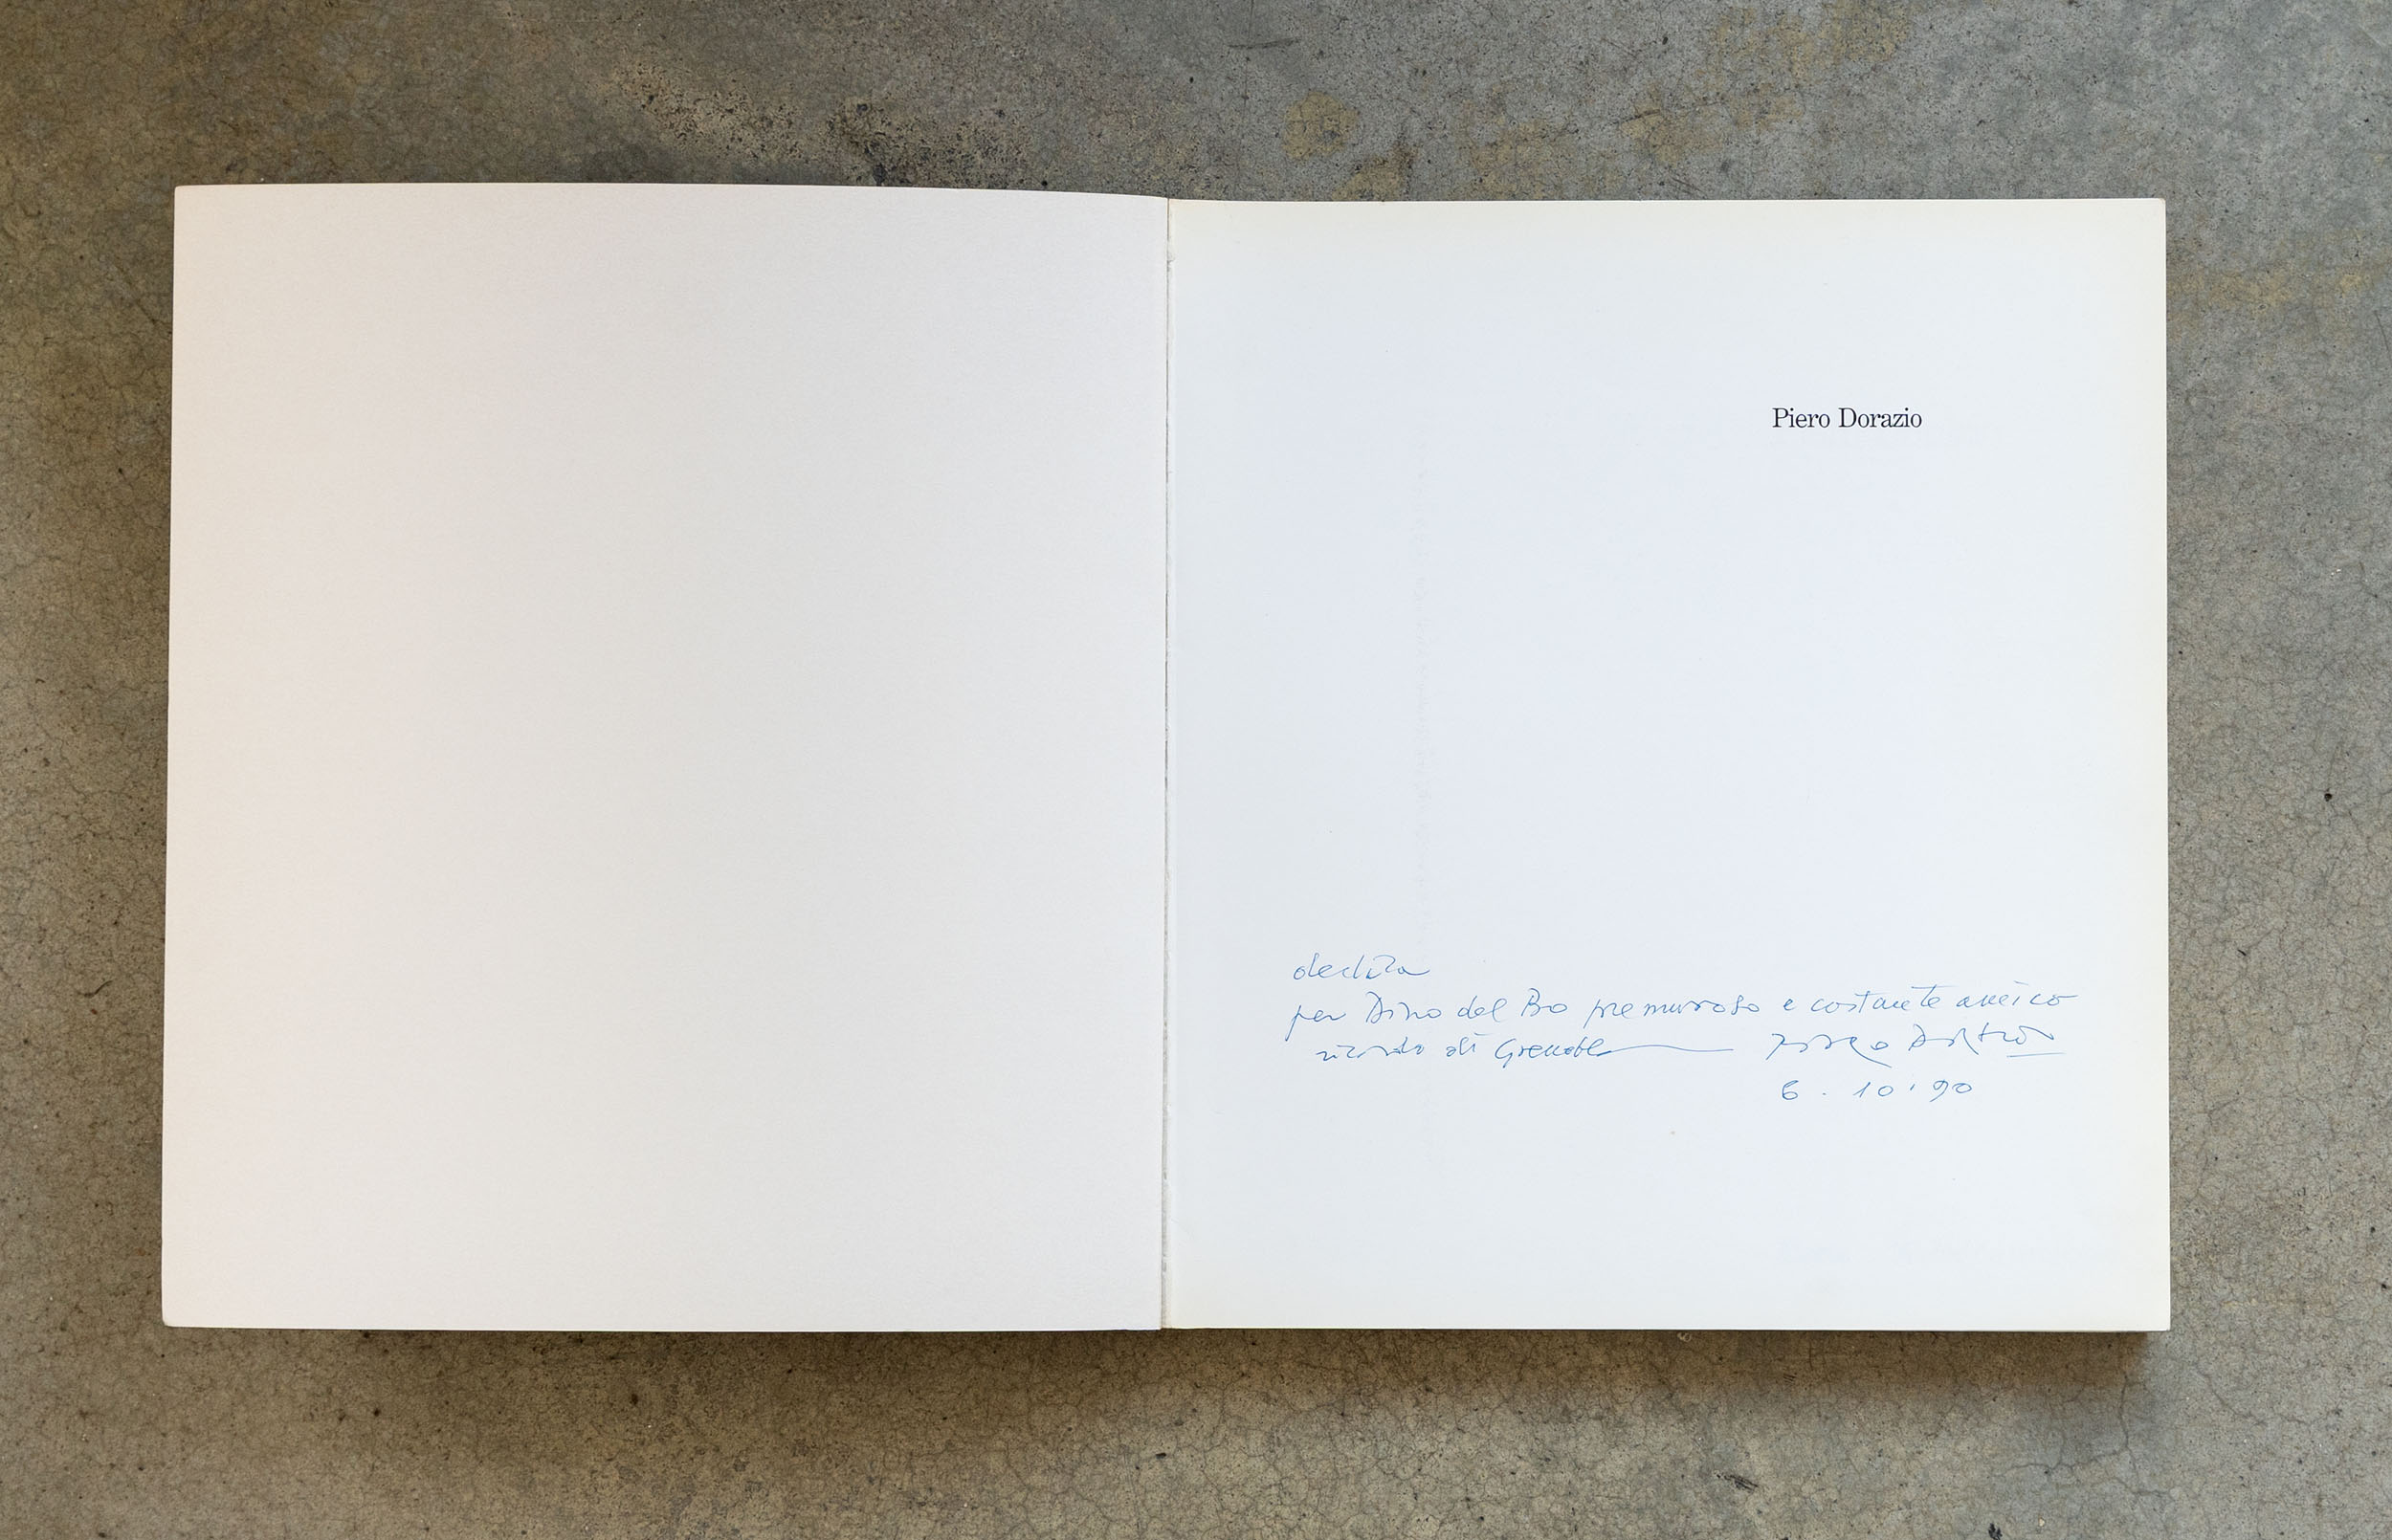 Piero Dorazio
dedica
per Dino del Bo premuroso e costante amico
ricordo di Grenoble Piero Dorazio
6 . 10 . 90